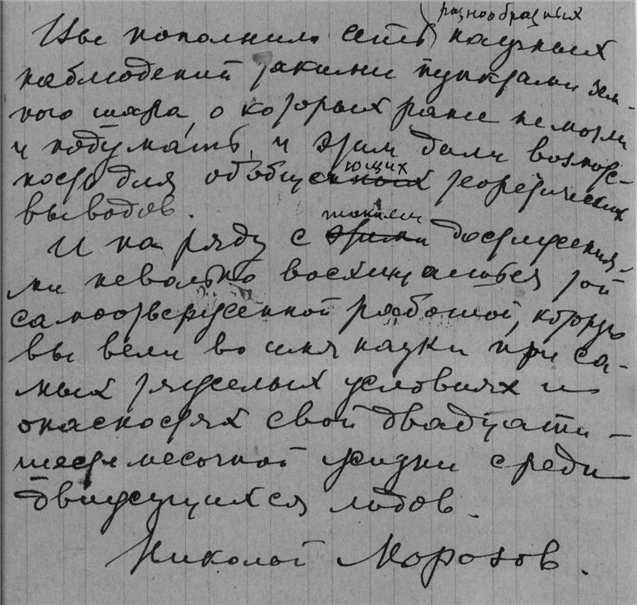 разнообразных
Вы пополнили сеть научных
наблюдений такими пунктами зем-
ного шара, о которых ранее не могли
и подумать, и этим дали возмож-
ность для обобщающих теоретических
выводов.
И на ряду с такими достижения-
ми невольно восхищаешься той
самоотверженной работой, которую
вы вели во имя науки при са-
мых тяжелых условиях и
опасностях своей двадцати-
шести месячной жизни среди
движущихся льдов.
Николай Морозов.